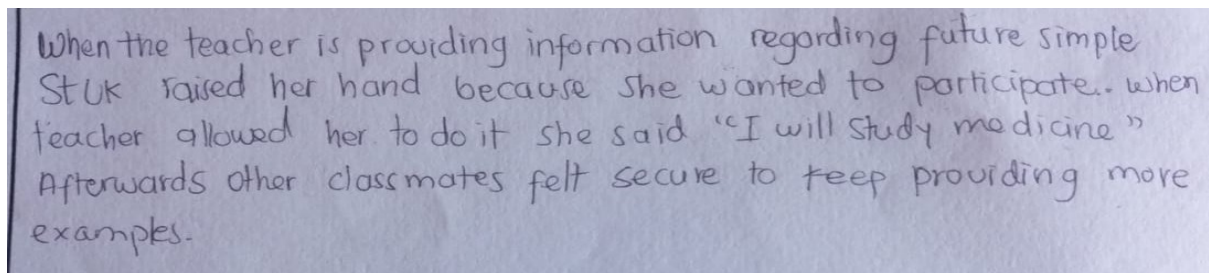 When the teacher is providing information regarding future simple
St UK raised her hand because she wanted to participate.. when
teacher allowed her to do it she said "I will study medicine"
Afterwards other classmates felt secure to keep providing more
examples.